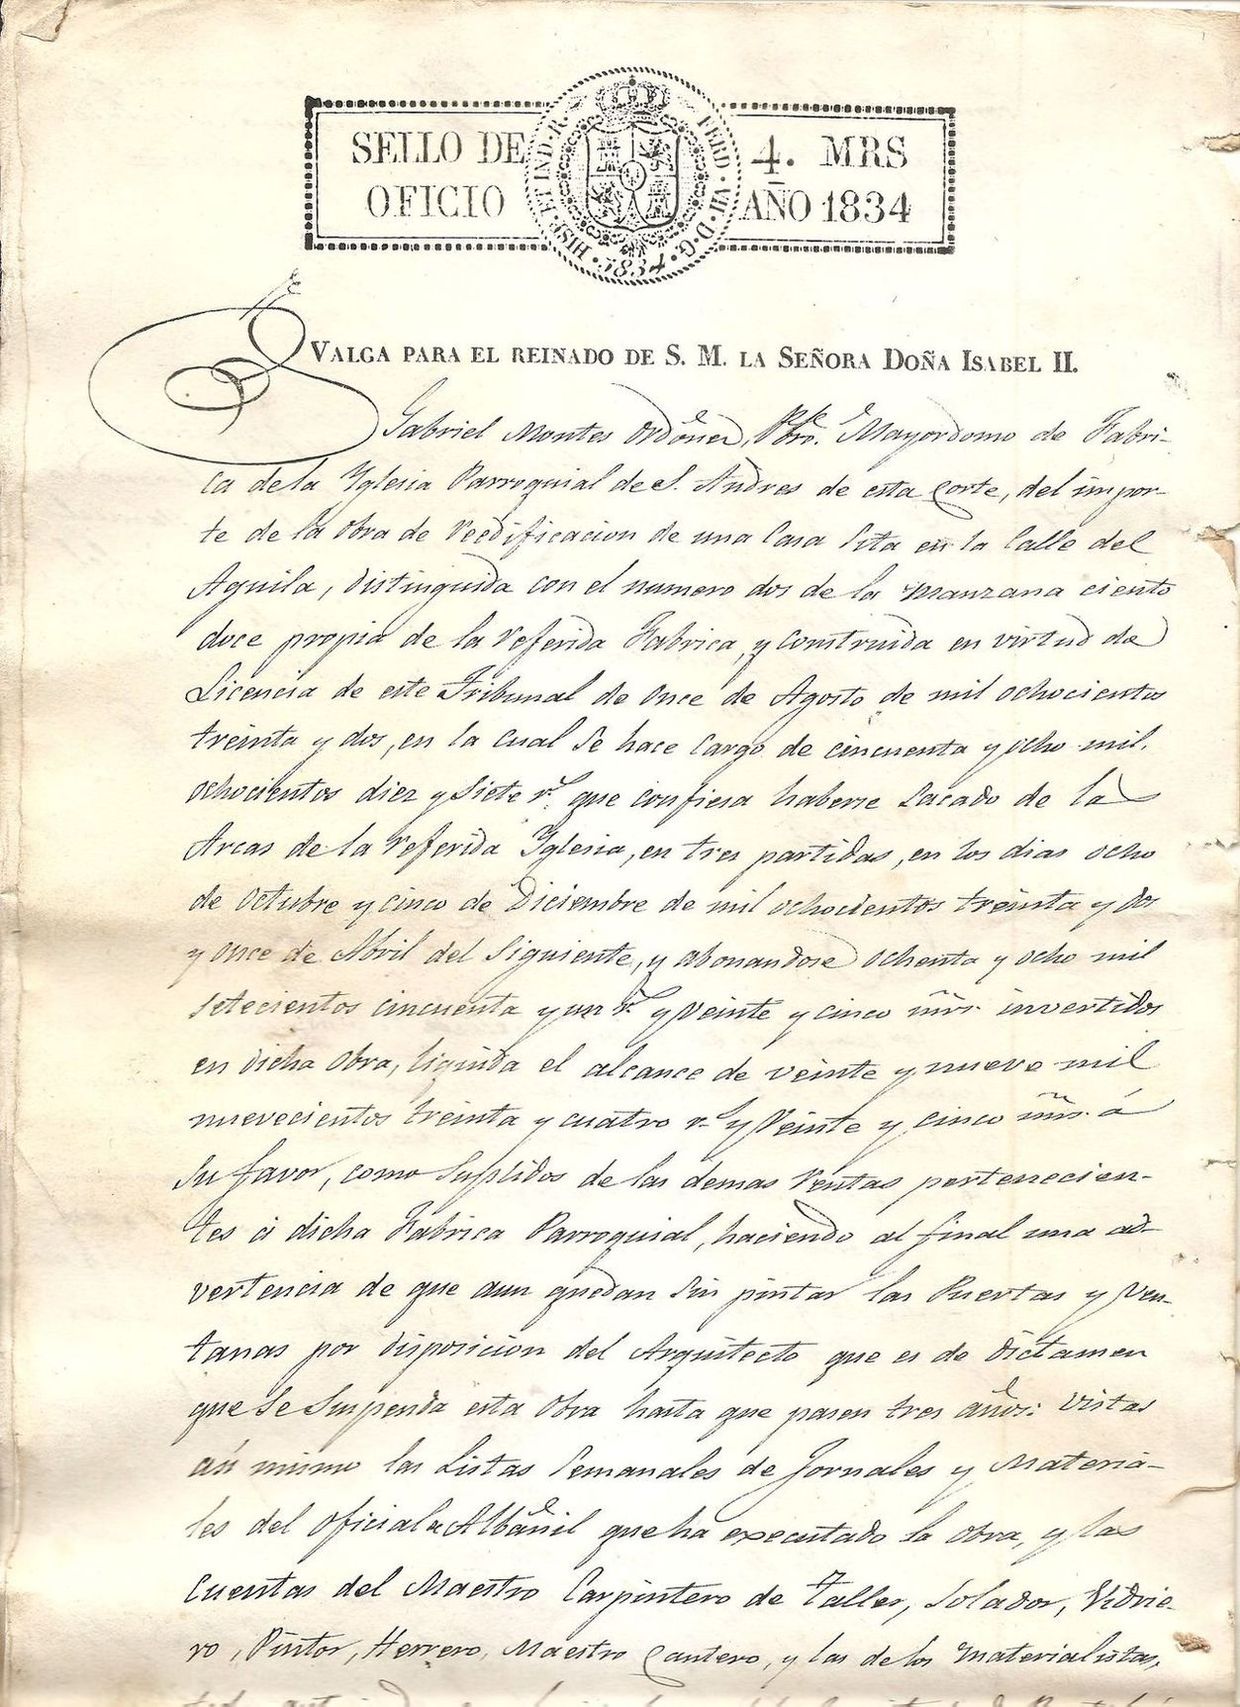 SELLO DE 4. MRS
OFICIO AÑO 1834
HISP. ET IND. R. FERD. VII. D. G. 1834
VALGA PARA EL REINADO DE S. M. LA SEÑORA DOÑA ISABEL II.
Gabriel Montes Ordoñez, Pbro. Mayordomo de Fabri-
ca de la Yglesia Parroquial de S. Andres de esta Corte, del impor-
te de la obra de reedificacion de una Casa sita en la Calle del
Aguila, distinguida con el numero dos de la Manzana ciento
doce propia de la referida Fabrica, y construida en virtud de
Licencia de este Tribunal de once de Agosto de mil ochocientos
treinta y dos, en la cual se hace cargo de cincuenta y ocho mil
ochocientos diez y siete rs. que confiesa haberse sacado de la
Arcas de la referida Yglesia, en tres partidas, en los dias ocho
de Octubre y cinco de Diciembre de mil ochocientos treinta y dos
y once de Abril del siguiente, y abonandose ochenta y ocho mil
setecientos cincuenta y un rs. y veinte y cinco mrs. invertidos
en dicha obra, liquida el alcance de veinte y nueve mil
nuevecientos treinta y cuatro rs. y veinte y cinco mrs. á
su favor, como suplidos de las demas rentas pertenecien-
tes á dicha Fabrica Parroquial, haciendo al final una ad-
vertencia de que aun quedan sin pintar las Puertas y Ven-
tanas por disposicion del Arquitecto que es de dictamen
que se suspenda esta obra hasta que pasen tres años: vistas
asi mismo las Listas semanales de Jornales y Materia-
les del oficial de Albañil que ha executado la obra, y las
Cuentas del Maestro Carpintero de taller, Solador, Vidrie-
ro, Pintor, Herrero, Maestro Cantero, y las de los Materialistas,